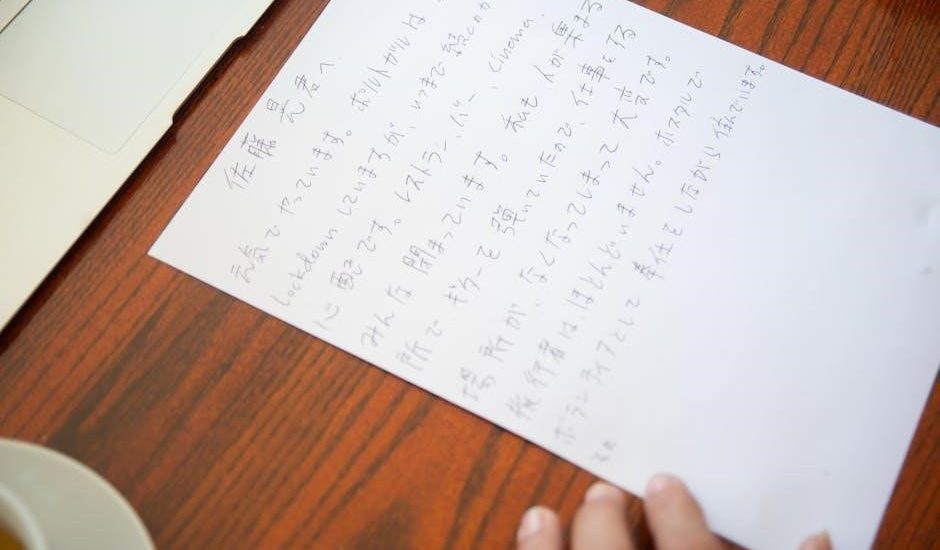 佐藤 晃君へ
元気でやっています。ポルトガルは
lockdownしていますが、いつまで続くのか
心配です。レストラン、バー、cinema、
みんな閉まっています。私も人が集まる
所でギターを弾いていたので、仕事をする
場所が、なくなってしまって大変です。
旅行者はほとんどいません。ホステルで
ボランティアとして 奉仕をしながら 住んでいます。